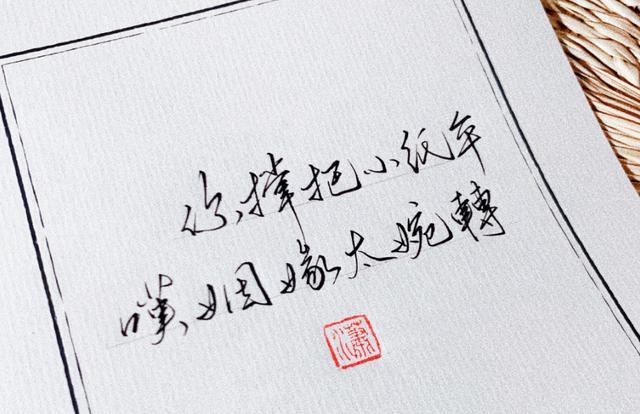 你撑把小纸伞
嘆姻缘太婉轉